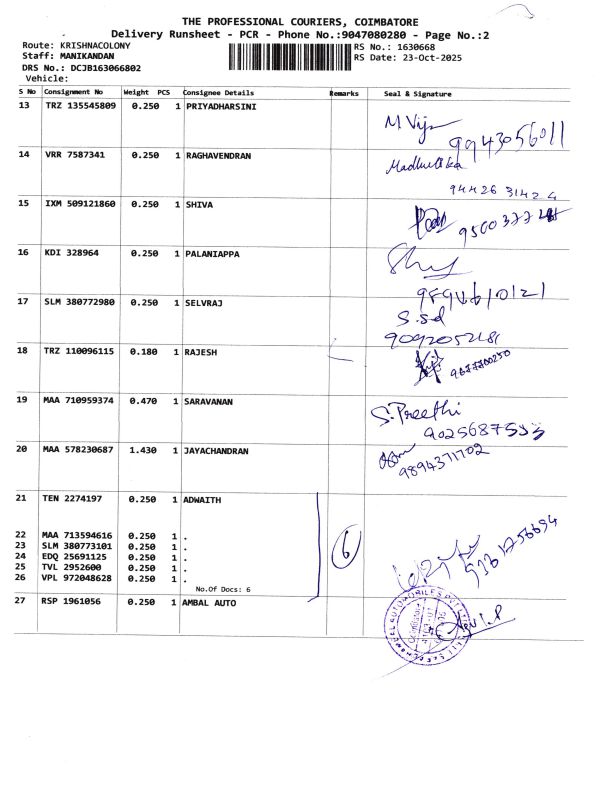 THE PROFESSIONAL COURIERS, COIMBATORE
Delivery Runsheet - PCR - Phone No.:9047080280 - Page No.:2
Route: KRISHNACOLONY RS No.: 1630668
Staff: MANIKANDAN RS Date: 23-Oct-2025
DRS No.: DCJB163066802
Vehicle:
S No Consignment No Weight PCS Consignee Details Remarks Seal & Signature
13 TRZ 135545809 0.250 1 PRIYADHARSINI
M.Vij
9943056011
14 VRR 7587341 0.250 1 RAGHAVENDRAN
94426 31424
15 IXM 509121860 0.250 1 SHIVA
16 KDI 328964 0.250 1 PALANIAPPA
17 SLM 380772980 0.250 1 SELVRAJ
S.sd
18 TRZ 110096115 0.180 1 RAJESH
9677700250
19 MAA 710959374 0.470 1 SARAVANAN
S.Preethi
20 MAA 578230687 1.430 1 JAYACHANDRAN
9894371702
21 TEN 2274197 0.250 1 ADWAITH
22 MAA 713594616 0.250 1 .
23 SLM 380773101 0.250 1 .
24 EDQ 25691125 0.250 1 .
25 TVL 2952600 0.250 1 .
26 VPL 972048628 0.250 1 .
6
No.Of Docs: 6
27 RSP 1961056 0.250 1 AMBAL AUTO